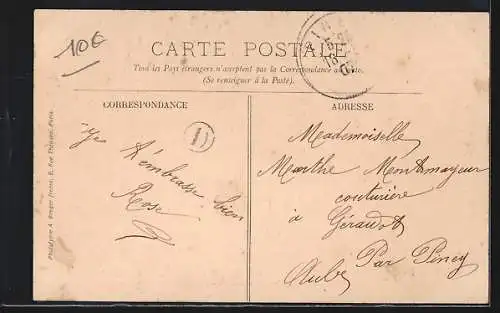 10€
CARTE POSTALE
Tous les Pays étrangers n'acceptent pas la Correspondance au recto.
(Se renseigner à la Poste).
CORRESPONDANCE
ADRESSE
Je
t'embrasse bien
Rose
Mademoiselle
Marthe Montmayeur
couturière
à Géraudot
Par Piney
Aube